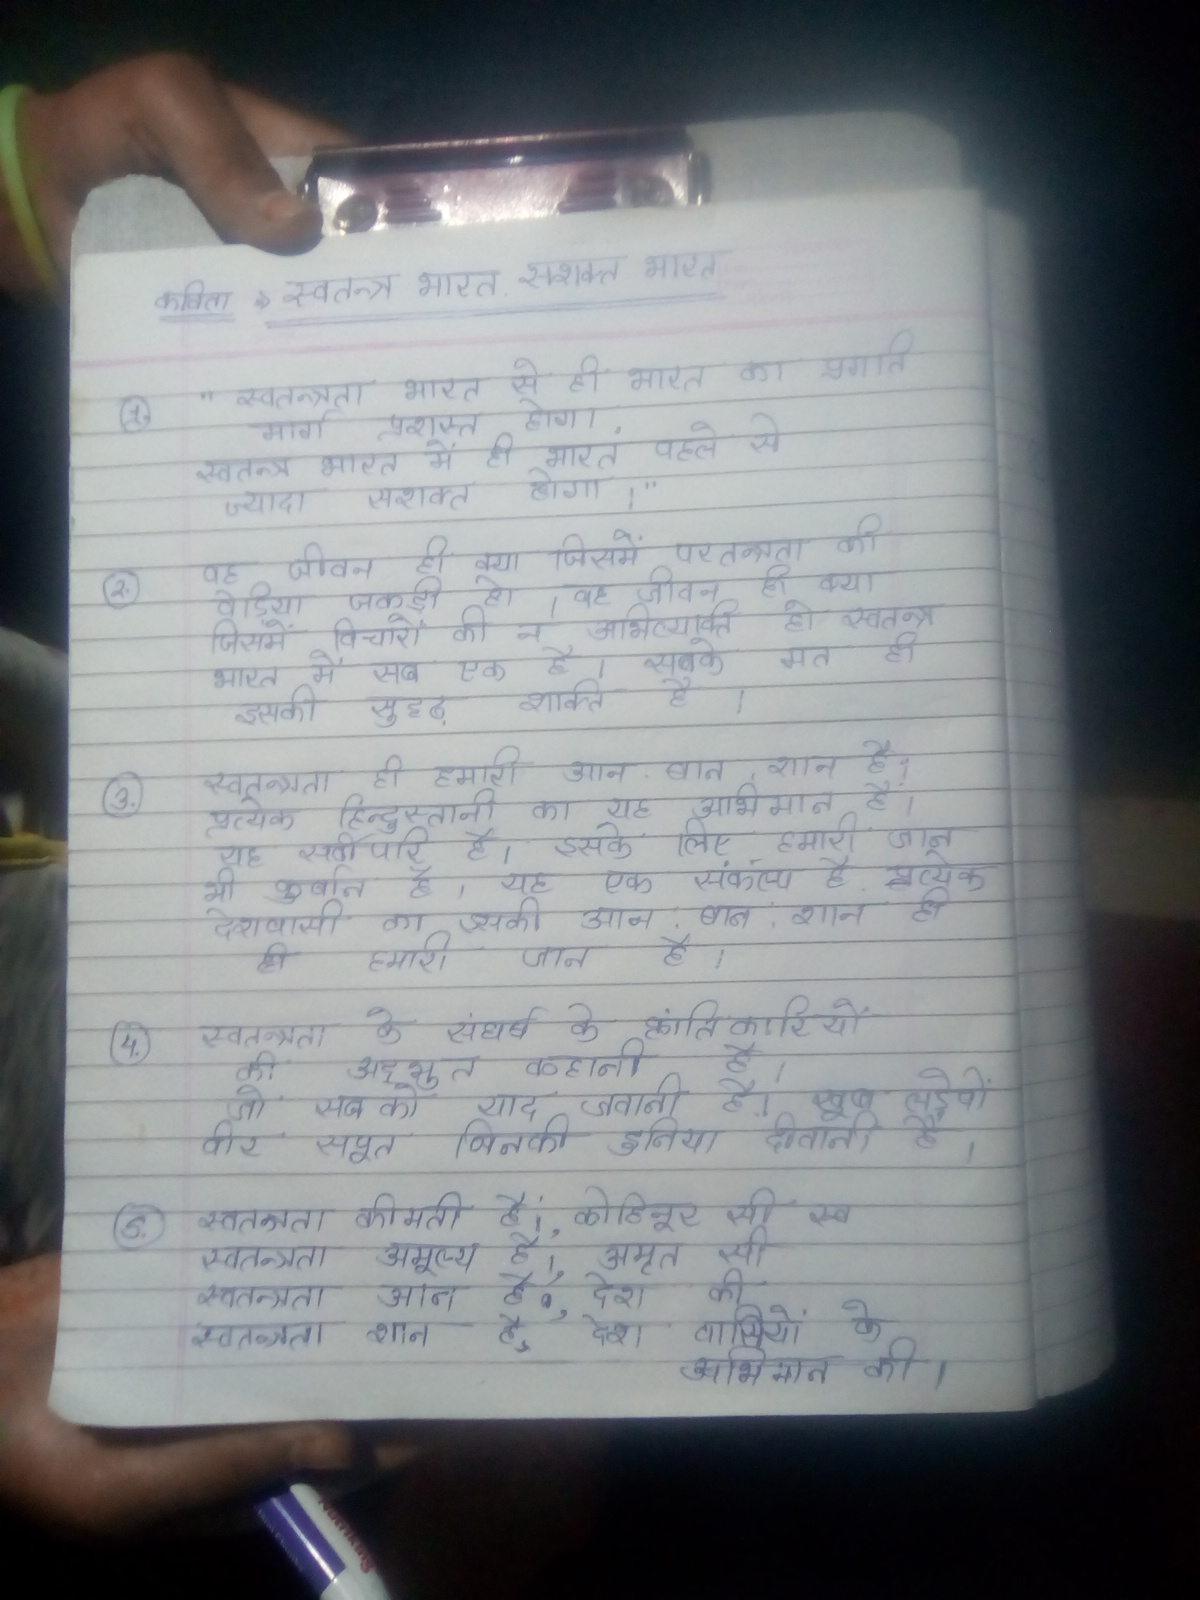 कविता → स्वतन्त्र भारत. सशक्त भारत
1. " स्वतन्त्रता भारत से ही भारत का प्रगति
मार्ग प्रशस्त होगा।
स्वतन्त्र भारत में ही भारत पहले से
ज्यादा सशक्त होगा।"
2. वह जीवन ही क्या जिसमें परतन्त्रता की
वेड़िया जकड़ी हो । वह जीवन ही क्या
जिसमें विचारों की न अभिव्यक्ति हो स्वतन्त्र
भारत में सब एक है। सबके मत ही
इसकी सुदृढ़ शक्ति है ।
3. स्वतन्त्रता ही हमारी आन . बान . शान है।
प्रत्येक हिन्दुस्तानी का यह अभिमान है।
यह सर्वोपरि है। इसके लिए हमारी जान
भी कुर्बान है । यह एक संकल्प है प्रत्येक
देशवासी का इसकी आन . बान . शान ही
ही हमारी जान है ।
4. स्वतन्त्रता के संघर्ष के क्रांतिकारियों
की अद्भुत कहानी है ।
जो सब को याद जवानी है। खूब लड़े वों
वीर सपूत जिनकी दुनिया दीवानी है ।
5. स्वतन्त्रता कीमती है।, कोहिनूर सी स्व
स्वतन्त्रता अमूल्य है।, अमृत सी
स्वतन्त्रता आन है, देश की
स्वतन्त्रता शान है, देश वासियों के
अभिमान की ।